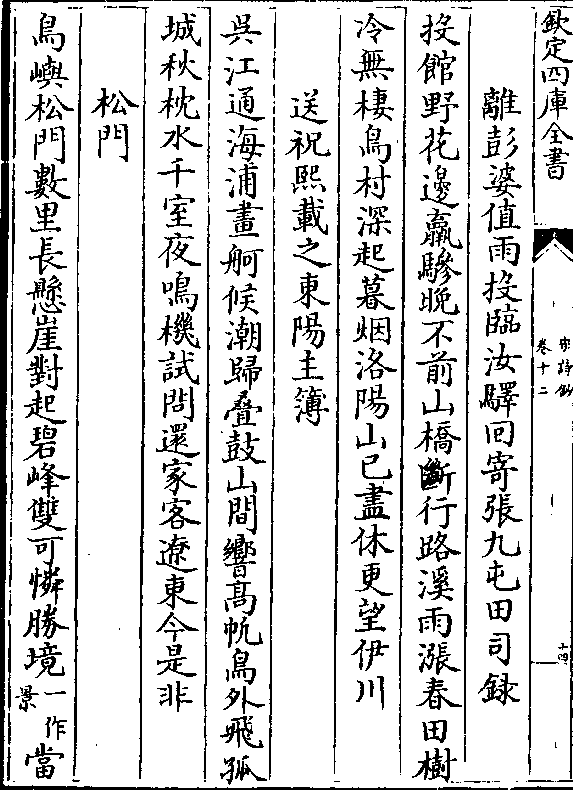 欽定四庫全書
宋詩鈔
卷十二
十四
離彭婆值雨投臨汝驛回寄張九屯田司録
投館野花邊羸驂晚不前山橋斷行路溪雨漲春田樹
冷無棲鳥村深起暮烟洛陽山已盡休更望伊川
送祝熙載之東陽主簿
吳江通海浦畫舸候潮歸疊鼓山間響高帆鳥外飛孤
城秋枕水千室夜鳴機試問還家客遼東今是非
松門
島嶼松門數里長懸崖對起碧峰雙可憐勝境一作景當